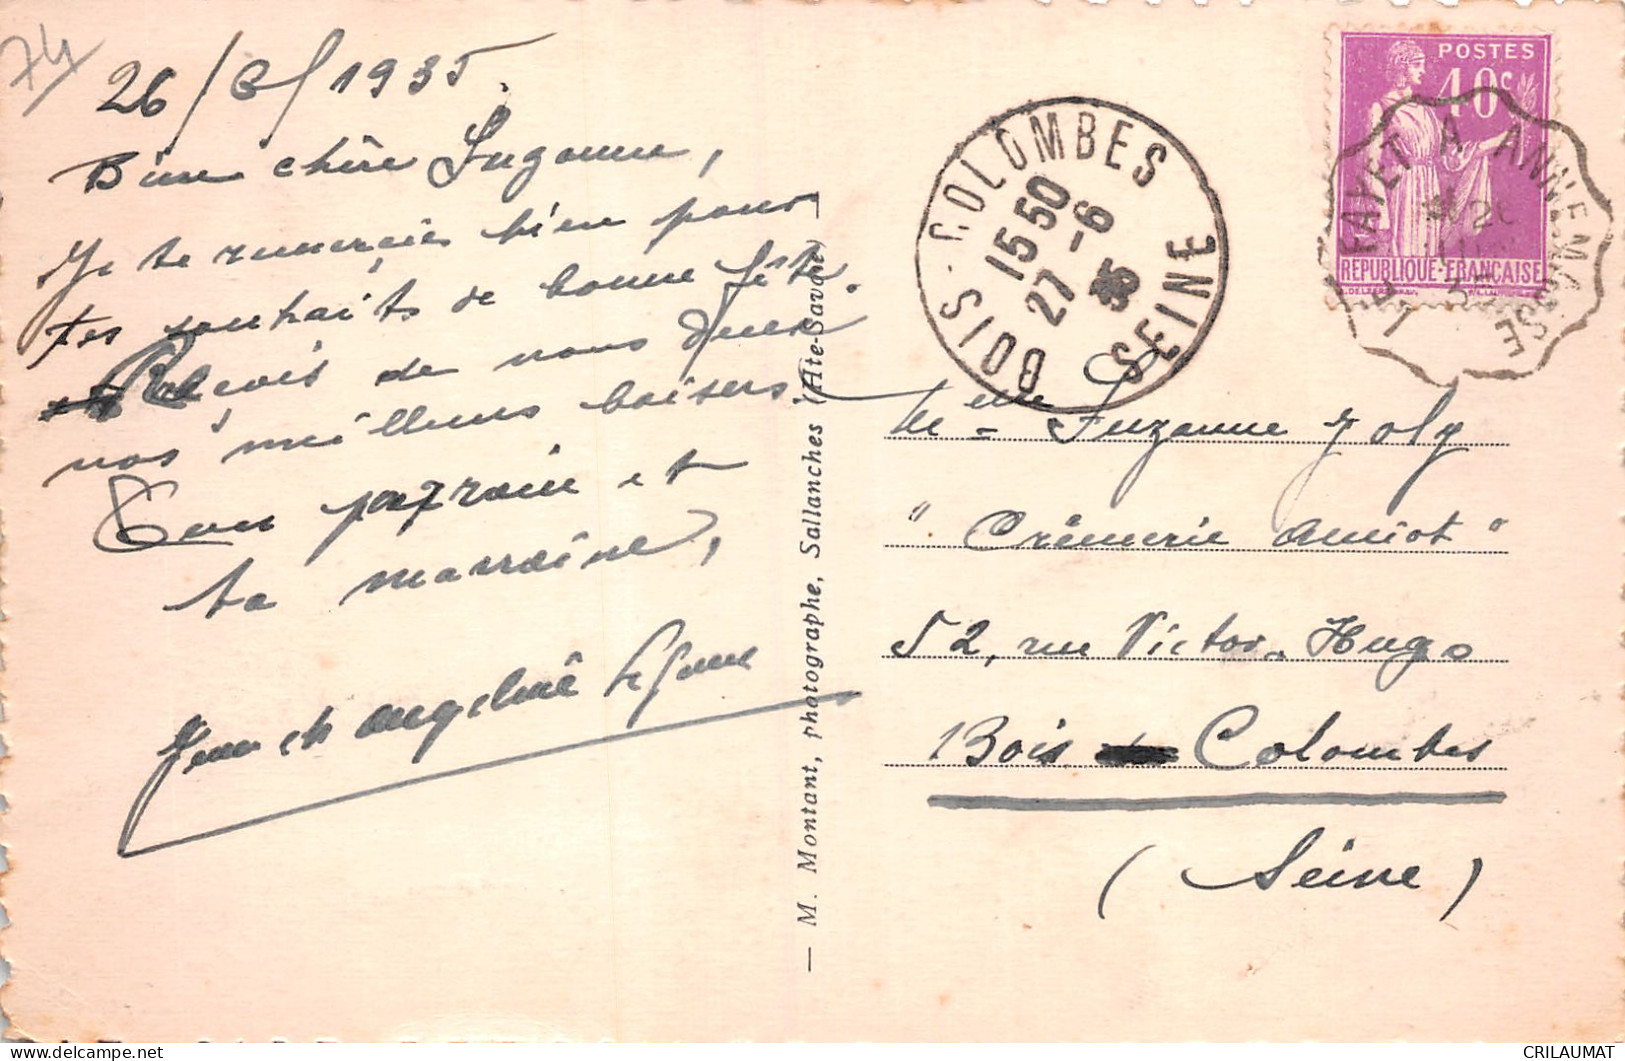 74
26/6/1935.
Bien chère Suzanne,
Je te remercies bien pour
tes souhaits de bonne fête.
Reçois de nous deux
nos meilleurs baisers.
Ton parrain et
ta marraine,
Jean et Angeline Lejeune
— M. Montant, photographe, Sallanches (Hte-Savoie)
BOIS-COLOMBES
SEINE
15 50
27 -6
35
POSTES
40c
REPUBLIQUE-FRANÇAISE
LE FAYET A ANNEMASSE
26
35
Melle Suzanne Joly
"Crèmerie Amiot"
52, rue Victor-Hugo
Bois Colombes
(Seine)
CRILAUMAT